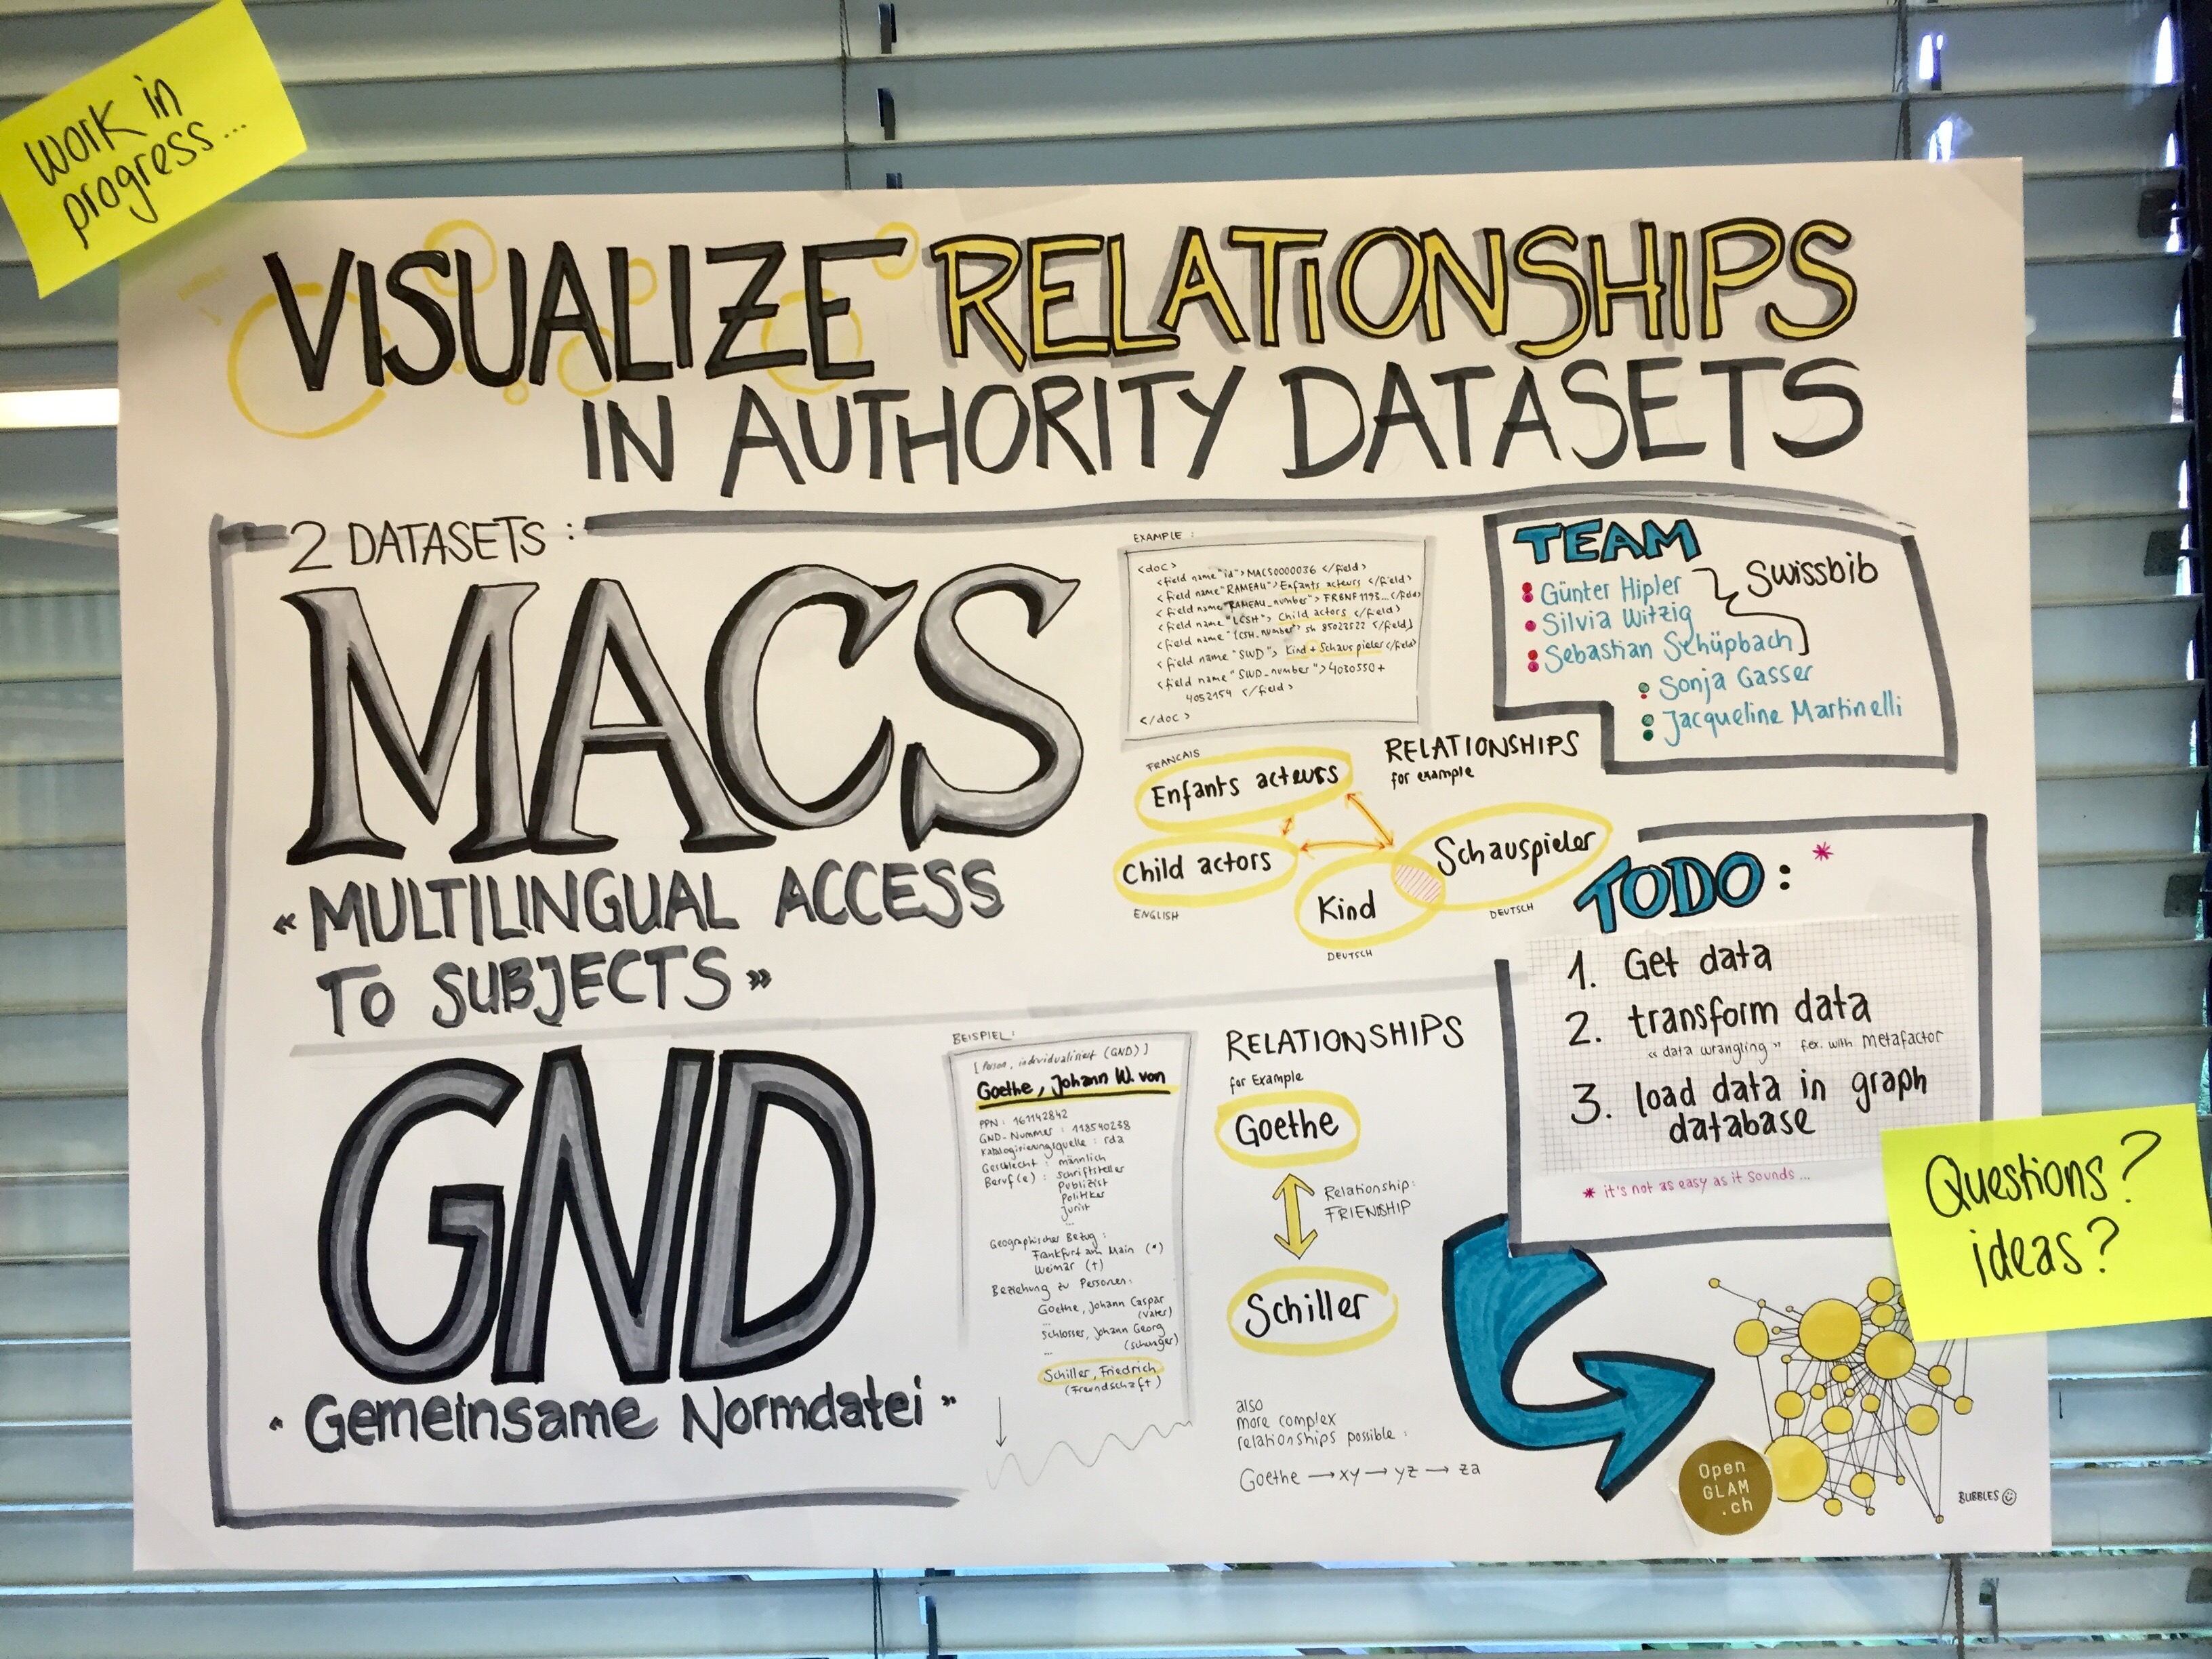 work in
progress...
VISUALIZE RELATIONSHIPS
IN AUTHORITY DATASETS
2 DATASETS :
MACS
« MULTILINGUAL ACCESS
TO SUBJECTS »
EXAMPLE :
<doc>
<field name "id"> MACS0000036 </field>
<field name "RAMEAU"> Enfants acteurs </field>
<field name "RAMEAU_number"> FRBNF1193... </field>
<field name "LCSH"> Child actors </field>
<field name "LCSH_number" sh 85023522 </field]
<field name "SWD"> Kind + Schauspieler </field>
<field name "SWD_number"> 4030550 +
4052154 </field>
</doc>
RELATIONSHIPS
for example
FRANCAIS
Enfants acteurs
Child actors
ENGLISH
Kind
DEUTSCH
Schauspieler
DEUTSCH
TEAM
Günter Hipler
Silvia Witzig
Sebastian Schüpbach
Swissbib
Sonja Gasser
Jacqueline Martinelli
TODO : *
1. Get data
2. transform data
« data wrangling » f.ex. with metafactor
3. load data in graph
database
* it's not as easy as it sounds ...
Questions?
ideas?
GND
« Gemeinsame Normdatei »
BEISPIEL :
[ Person, individualisiert (GND) ]
Goethe, Johann W. von
PPN : 161142842
GND-Nummer : 118540238
Katalogisierungsquelle : rda
Geschlecht : männlich
Beruf(e) : Schriftsteller
Publizist
Politiker
Jurist
...
Geographischer Bezug :
Frankfurt am Main (*)
Weimar (†)
Beziehung zu Personen:
Goethe, Johann Caspar
(Vater)
...
Schlosser, Johann Georg
(Schwager)
...
Schiller, Friedrich
(Freundschaft)
RELATIONSHIPS
for Example
Goethe
Relationship:
FRIENDSHIP
Schiller
also
more complex
relationships possible :
Goethe → xy → yz → za
Open
GLAM
.ch
BUBBLES